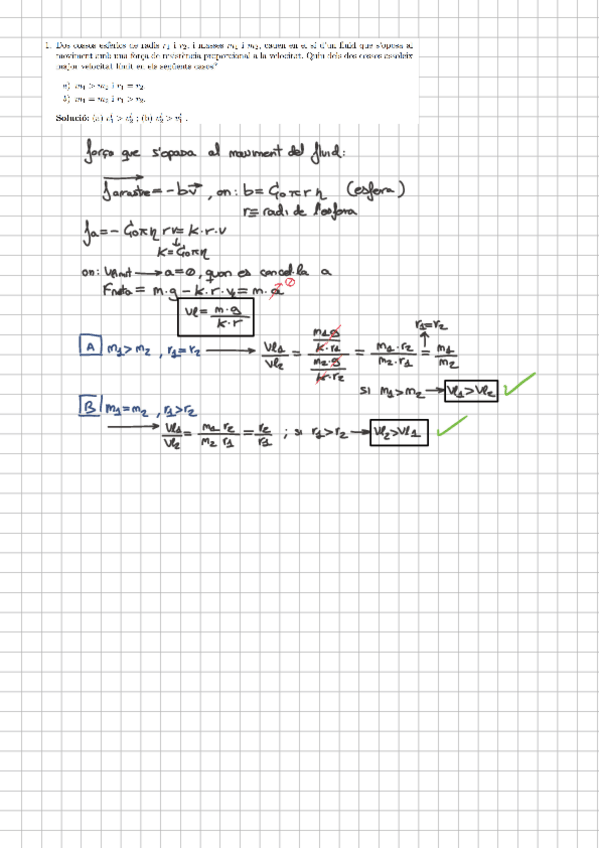 1. Dos cossos esfèrics de radis r₁ i r₂, i masses m₁ i m₂, cauen en el si d'un fluid que s'oposa al
moviment amb una força de resistència proporcional a la velocitat. Quin dels dos cossos assoleix
major velocitat límit en els següents casos?
a) m₁ > m₂ i r₁ = r₂.
b) m₁ = m₂ i r₁ > r₂.
Solució: (a) > ; (b) > .
força que s'oposa al moviment del fluid:
farrastre = -bv, on: b = 6πrη (esfera)
r = radi de l'esfera
fa = -6πηrv = k·r·v
k = 6πη
on: vlímit → a=0, quan es cancel·la a
Fneta = m·g - k·r·v = m·a 0
vl = m·g / k·r
A m₁>m₂, r₁=r₂ → vl₁/vl₂ = (m₁·g / k·r₁) / (m₂·g / k·r₂) = m₁·r₂ / m₂·r₁ = m₁/m₂ r₁=r₂
si m₁>m₂ → vl₁>vl₂
B m₁=m₂, r₁>r₂
→ vl₁/vl₂ = m₁ r₂ / m₂ r₁ = r₂/r₁ ; si r₁>r₂ → vl₂>vl₁